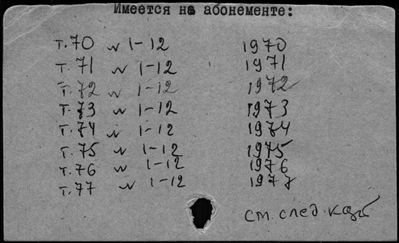 Имеется на абонементе:
т.70 № 1-12 1970
т.71 № 1-12 1971
т.72 № 1-12 1972
т.73 № 1-12 1973
т.74 № 1-12 1974
т.75 № 1-12 1975
т.76 № 1-12 1976
т.77 № 1-12 1977
см. след. карт